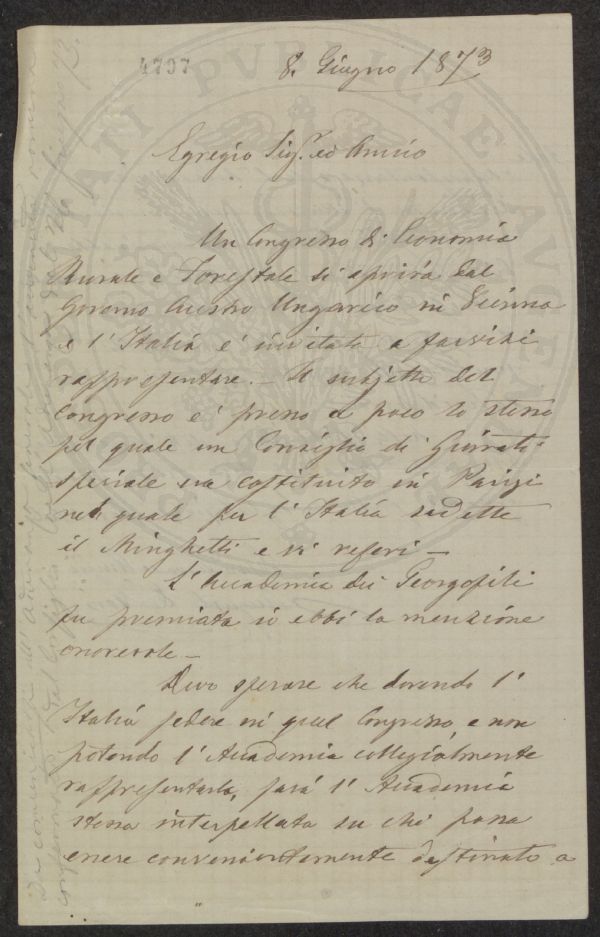 4797
8. Giugno 1873
Egregio Sig.r ed Amico
Un Congresso di Economia
Rurale e Forestale si aprirà dal
Governo Austro Ungarico in Vienna
e l'Italia è invitata a farvisi
rappresentare. – Il subjetto del
Congresso e' presso a poco lo stesso
pel quale un Consiglio di Giurati
speciale era costituito in Parigi
nel quale per l'Italia sedette
il Minghetti e vi riferì –
L'Accademia dei Georgofili
fu premiata io ebbi la menzione
onorevole –
Devo sperare che dovendo l'
Italia sedere in quel Congresso e non
potendo l'Accademia collegialmente
rappresentarla, sarà l'Accademia
stessa interpellata su chi possa
essere convenientemente destinato a